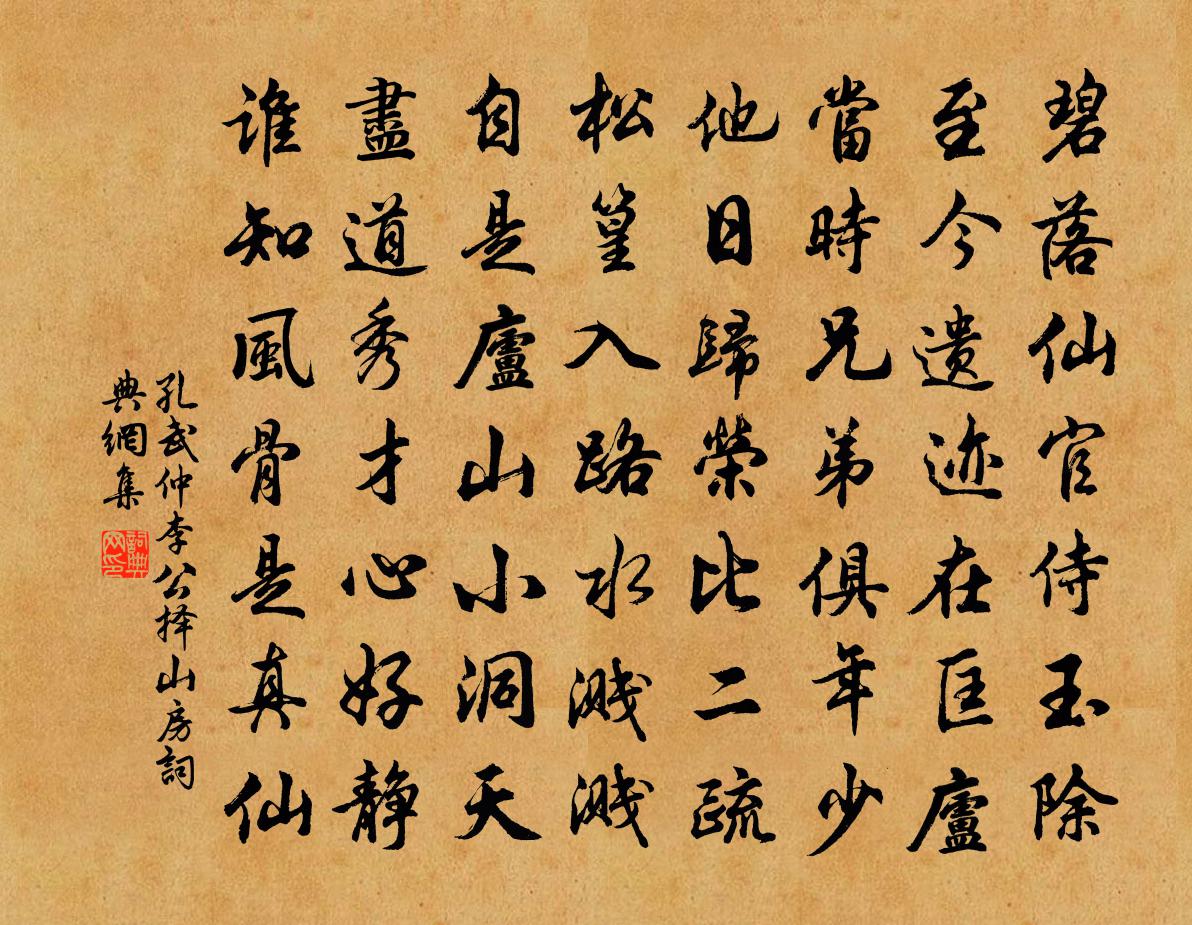 碧落仙官侍玉除
至今遗迹在匡廬
當時兄弟俱年少
他日歸榮比二疏
松篁入路水溅溅
自是廬山小洞天
盡道秀才心好静
谁知風骨是真仙
孔武仲李公择山房詞
典網集
詞典
网印